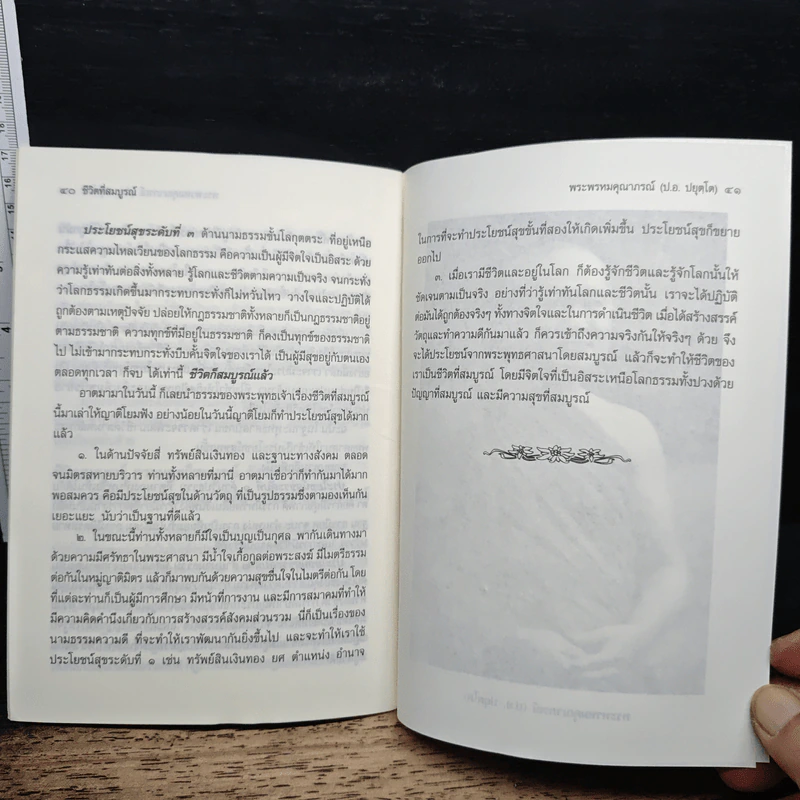 ๔๐ ชีวิตที่สมบูรณ์
ประโยชน์สุขระดับที่ ๓ ด้านนามธรรมขั้นโลกุตตระ ที่อยู่เหนือ
กระแสความไหลเวียนของโลกธรรม คือความเป็นผู้มีจิตใจเป็นอิสระ ด้วย
ความรู้เท่าทันต่อสิ่งทั้งหลาย รู้โลกและชีวิตตามความเป็นจริง จนกระทั่ง
ว่าโลกธรรมเกิดขึ้นมากระทบกระทั่งก็ไม่หวั่นไหว วางใจและปฏิบัติได้
ถูกต้องตามเหตุปัจจัย ปล่อยให้กฎธรรมชาติทั้งหลายก็เป็นกฎธรรมชาติอยู่
ตามธรรมชาติ ความทุกข์ที่มีอยู่ในธรรมชาติ ก็คงเป็นทุกข์ของธรรมชาติ
ไป ไม่เข้ามากระทบกระทั่งบีบคั้นจิตใจของเราได้ เป็นผู้มีสุขอยู่กับตนเอง
ตลอดทุกเวลา ก็จบ ได้เท่านี้ ชีวิตก็สมบูรณ์แล้ว
อาตมามาในวันนี้ ก็เลยนำธรรมของพระพุทธเจ้าเรื่องชีวิตที่สมบูรณ์
นี้มาเล่าให้ญาติโยมฟัง อย่างน้อยในวันนี้ญาติโยมก็ทำประโยชน์สุขได้มาก
แล้ว
๑. ในด้านปัจจัยสี่ ทรัพย์สินเงินทอง และฐานะทางสังคม ตลอด
จนมิตรสหายบริวาร ท่านทั้งหลายที่มานี่ อาตมาเชื่อว่าก็ทำกันมาได้มาก
พอสมควร คือมีประโยชน์สุขในด้านวัตถุ ที่เป็นรูปธรรมซึ่งตามองเห็นกัน
เยอะแยะ นับว่าเป็นฐานที่ดีแล้ว
๒. ในขณะนี้ท่านทั้งหลายก็มีใจเป็นบุญเป็นกุศล พากันเดินทางมา
ด้วยความมีศรัทธาในพระศาสนา มีน้ำใจเกื้อกูลต่อพระสงฆ์ มีไมตรีธรรม
ต่อกันในหมู่ญาติมิตร แล้วก็มาพบกันด้วยความชื่นใจในไมตรีต่อกัน โดย
ที่แต่ละท่านก็เป็นผู้มีการศึกษา มีหน้าที่การงาน และมีการสมาคมที่ทำให้
มีความคิดคำนึงเกี่ยวกับการสร้างสรรค์สังคมส่วนรวม นี่ก็เป็นเรื่องของ
นามธรรมความดี ที่จะทำให้เราพัฒนากันยิ่งขึ้นไป และจะทำให้เราใช้
ประโยชน์สุขระดับที่ ๑ เช่น ทรัพย์สินเงินทอง ยศ ตำแหน่ง อำนาจ
พระพรหมคุณาภรณ์ (ป.อ. ปยุตฺโต) ๔๑
ในการที่จะทำประโยชน์สุขขั้นที่สองให้เกิดเพิ่มขึ้น ประโยชน์สุขก็ขยาย
ออกไป
๓. เมื่อเรามีชีวิตและอยู่ในโลก ก็ต้องรู้จักชีวิตและรู้จักโลกนั้นให้
ชัดเจนตามเป็นจริง อย่างที่ว่ารู้เท่าทันโลกและชีวิตนั้น เราจะได้ปฏิบัติ
ต่อมันได้ถูกต้องจริงๆ ทั้งทางจิตใจและในการดำเนินชีวิต เมื่อได้สร้างสรรค์
วัตถุและทำความดีกันมาแล้ว ก็ควรเข้าถึงความจริงกันให้จริงๆ ด้วย จึง
จะได้ประโยชน์จากพระพุทธศาสนาโดยสมบูรณ์ แล้วก็จะทำให้ชีวิตของ
เราเป็นชีวิตที่สมบูรณ์ โดยมีจิตใจที่เป็นอิสระเหนือโลกธรรมทั้งปวงด้วย
ปัญญาที่สมบูรณ์ และมีความสุขที่สมบูรณ์